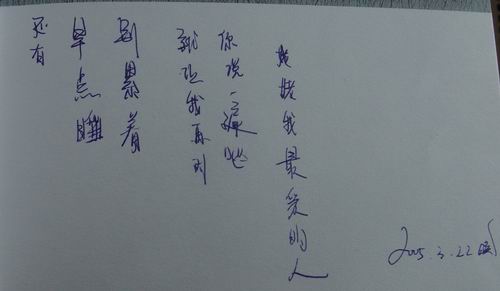 还有
早点睡
别累着
就让我再对
你说一遍吧
姥姥我最爱的人
2005.3.22晚